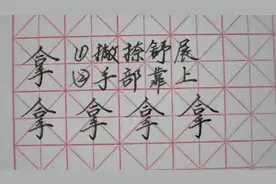 拿 ①撇捺舒展
②手部靠上
拿 拿 拿 拿